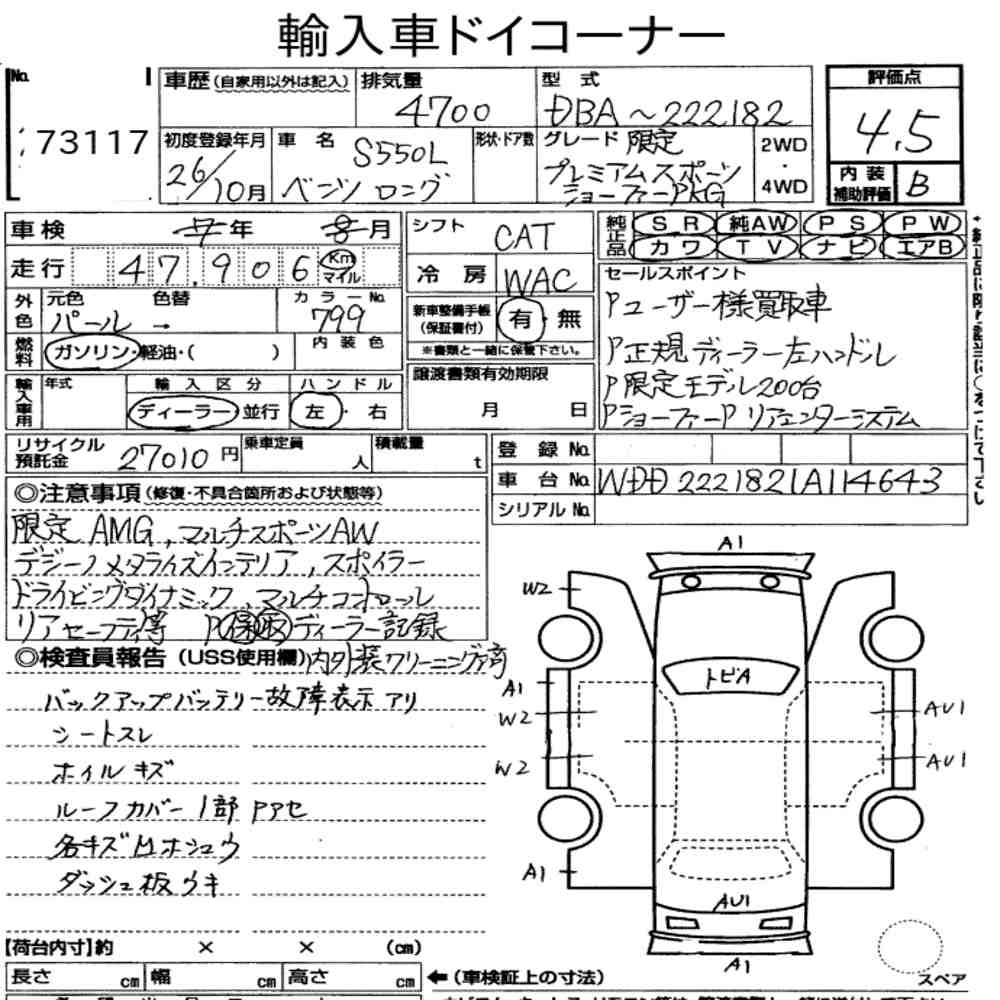 輸入車ドイコーナー
No.
73117
車歴(自家用以外は記入)
排気量
4700
型式
DBA~222182
評価点
4.5
初度登録年月
26/10月
車名
S550L
ベンツ ロング
形状・ドア数
グレード 限定
プレミアムスポーツ
ショーファーPKG
2WD
・
4WD
内装
補助評価
B
車検 7年 8月
シフト
CAT
純正品
SR 純AW PS PW
カワ TV ナビ エアB
走行 47,906 Km マイル
冷房
WAC
セールスポイント
Pユーザー様買取車
P正規ディーラー左ハンドル
P限定モデル200台
PショーファーP リアエンターシステム
外色
元色 色替
パール →
カラーNo.
799
新車整備手帳
(保証書付)
有・無
※書類と一緒に保管下さい。
燃料
ガソリン・軽油・( )
内装色
輸入車用
年式
輸入区分
ディーラー・並行
ハンドル
左・右
譲渡書類有効期限
月 日
リサイクル
預託金
27010円
乗車定員
人
積載量
t
登録No.
車台No. WDD2221821A114643
シリアルNo.
◎注意事項(修復・不具合箇所および状態等)
限定 AMG, マルチスポーツAW
デジーノメタライズインテリア, スポイラー
ドライビングダイナミック, マルチコントロール
リアセーフティ等 P保取ディーラー記録
◎検査員報告(USS使用欄)内外装クリーニング済
バックアップバッテリー故障表示アリ
シートスレ
ホイルキズ
ルーフカバー1部Pアセ
各キズMホシュウ
ダッシュ板ウキ
A1
W2
トビA
A1
W2
W2
A1
AU1
AU1
AU1
A1
スペア
【荷台内寸】約 × × (cm)
長さ cm 幅 cm 高さ cm
←(車検証上の寸法)